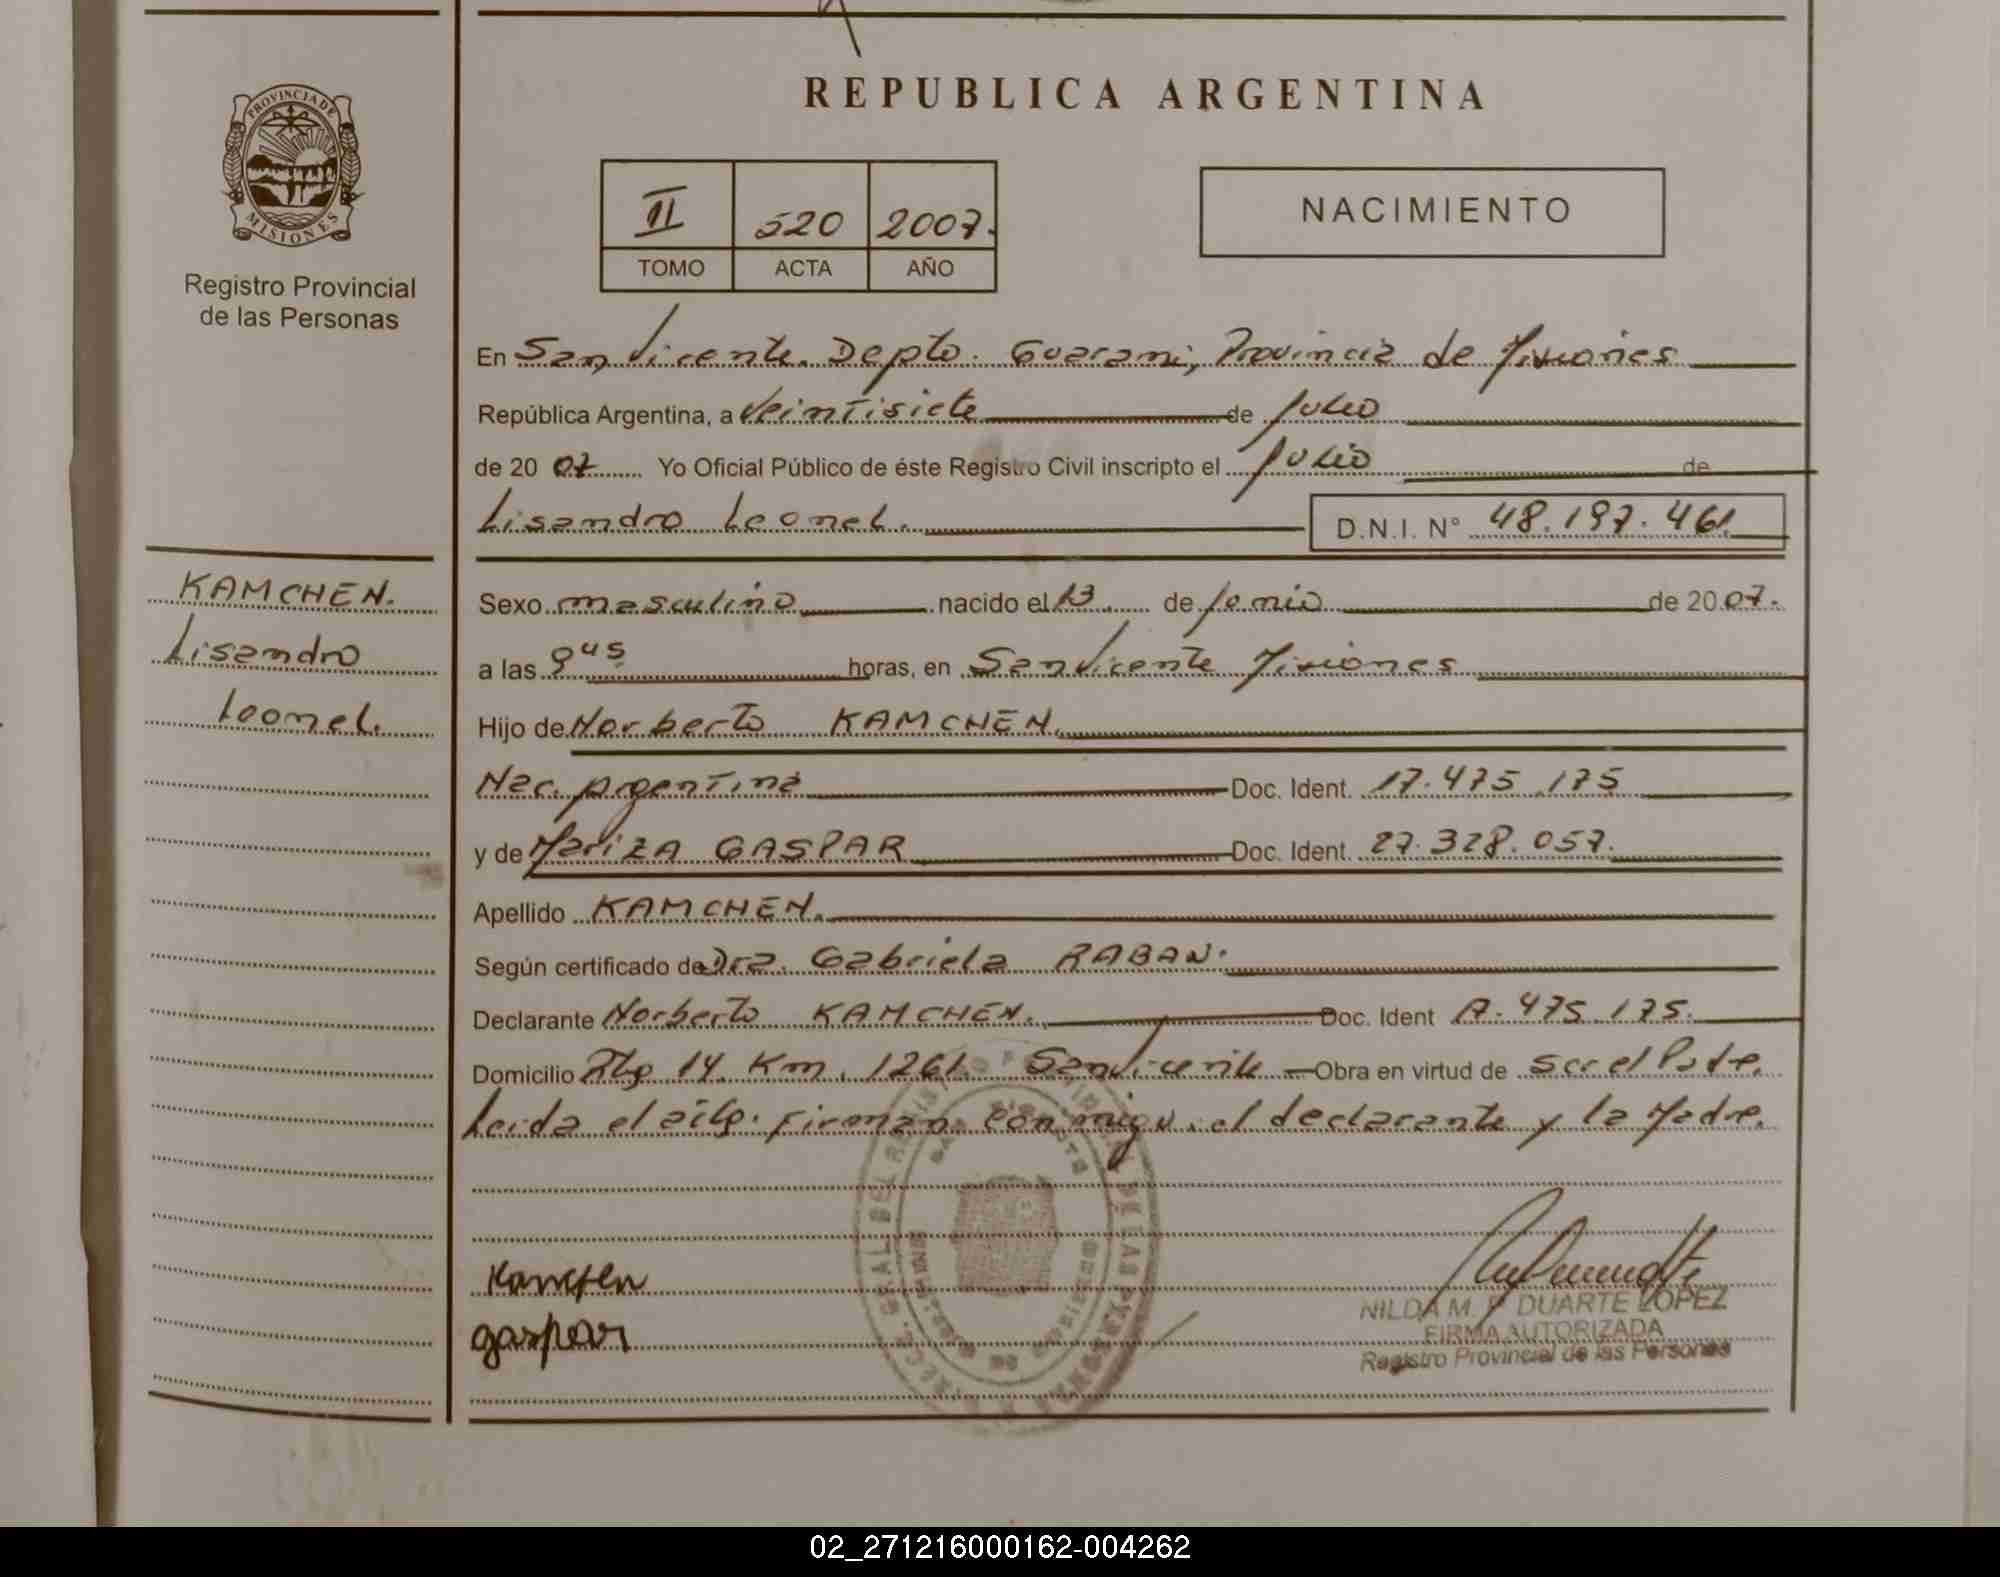 REPUBLICA ARGENTINA
PROVINCIA DE
MISIONES
Registro Provincial
de las Personas
II 520 2007.
TOMO ACTA AÑO
NACIMIENTO
En San Vicente. Depto. Guarani, Provincia de Misiones
República Argentina, a Veintisiete de Julio
de 20 07 Yo Oficial Público de éste Registro Civil inscripto el Julio de
Lisandro Leonel. D.N.I. N° 48.197.461.
KAMCHEN.
Lisandro
Leonel.
Sexo masculino nacido el 13. de Junio de 20 07.
a las 9 45 horas, en San Vicente Misiones
Hijo de Norberto KAMCHEN.
Nac. Argentina Doc. Ident. 17.475.175
y de Mariza GASPAR Doc. Ident. 27.328.057.
Apellido KAMCHEN.
Según certificado de Dra. Gabriela RABAN.
Declarante Norberto KAMCHEN. Doc. Ident 17.475.175.
Domicilio 14 Km. 1261. San Vicente Obra en virtud de ser el Padre.
Leida el firman conmigo el declarante y la Madre.
Kamchen
gaspar
NILDA M. P. DUARTE LOPEZ
FIRMA AUTORIZADA
Registro Provincial de las Personas
02_271216000162-004262